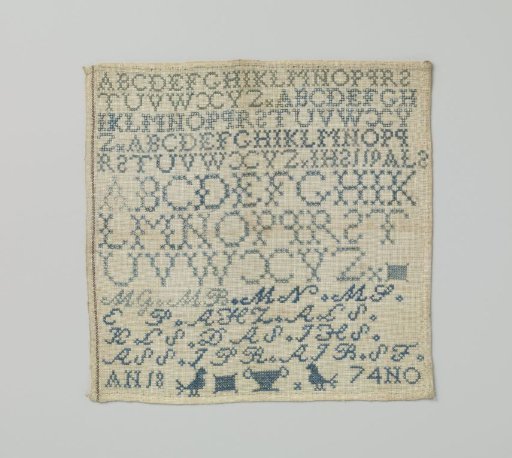 ABCDEFGHIKLMNOPQRS
TUVWXYZxABCDEFGH
IKLMNOPQRSTUVWXY
ZxABCDEFGHIKLMNOPQ
RSTUVWXYZx
ABCDEFGHIK
LMNOPQRST
UVWXYZx
MG MB MN MS
E P AHZ ALS
KLS D AS JHS
ASS JPR AJB ST
AN18 x 74NO